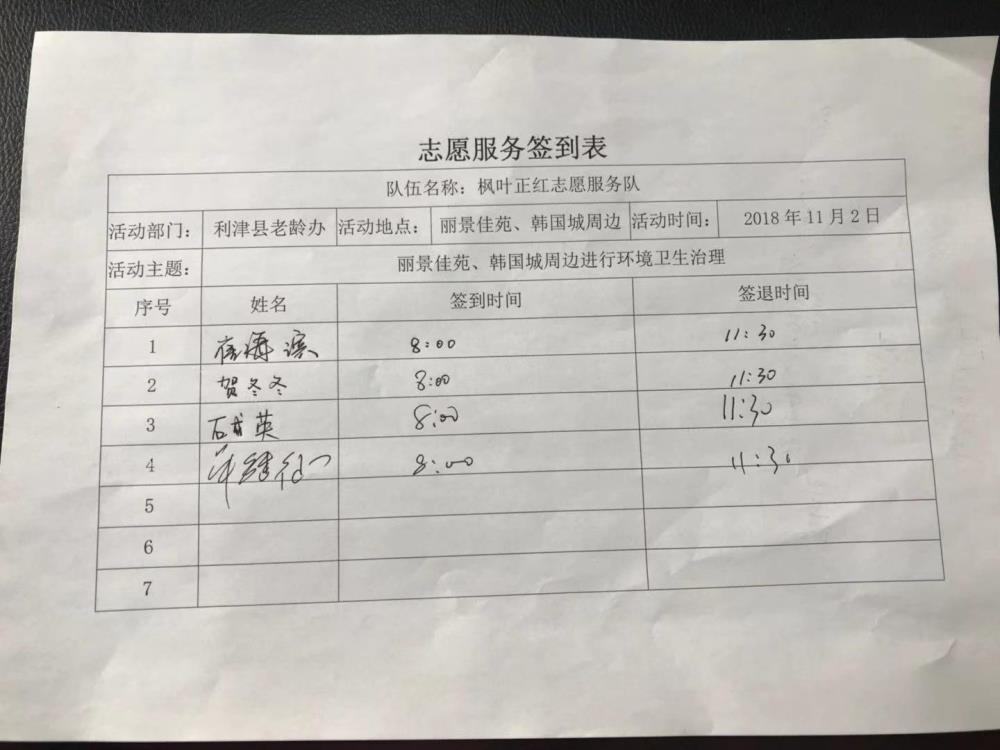 志愿服务签到表
队伍名称：枫叶正红志愿服务队
活动部门： 利津县老龄办 活动地点： 丽景佳苑、韩国城周边 活动时间： 2018年11月2日
活动主题： 丽景佳苑、韩国城周边进行环境卫生治理
序号 姓名 签到时间 签退时间
1 8:00 11:30
2 贺冬冬 8:00 11:30
3 英 8:00 11:30
4 8:00 11:30
5
6
7